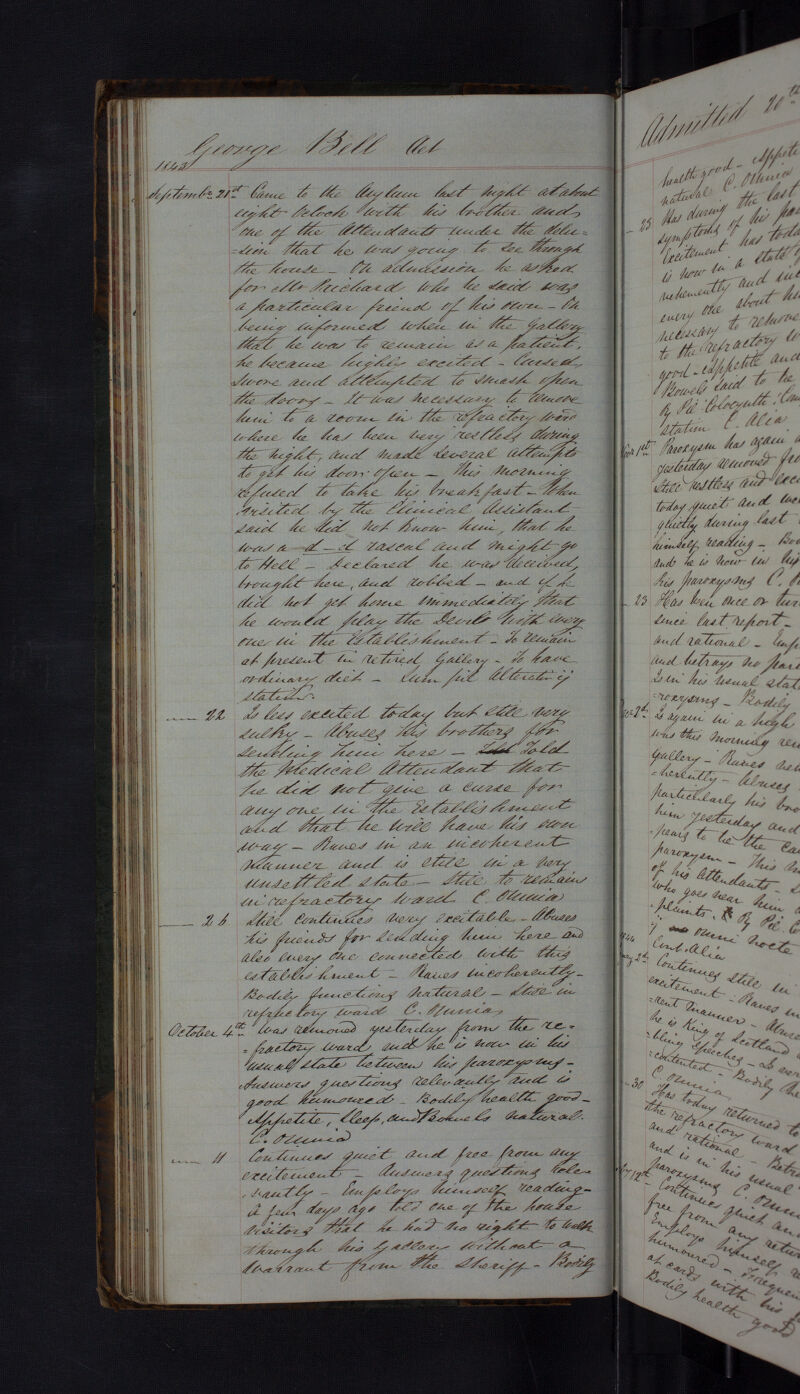 George Bell Aet
1843
September 21st Came to the Asylum last night at about
eight o'clock with his brother and
one of the Attendants under the delu=
=sion that he was going to see through
the house – On admission he asked
for Mr Prichard who he said was
a particular friend of his own – On
being informed when in the Gallery
that he was to remain as a patient,
he became highly excited – Cursed,
swore and attempted to smash open
the doors – It was necessary to remove
him to a room in the refractory ward
where he has been very restless during
the night, and made several attempts
to get his door open – This morning
refused to take his breakfast – When
visited by the Clinical Assistant
said he did not know him, that he
was a d–d rascal and might go
to Hell – Declared he was deceived,
brought here, and robbed – and if he
did not get home immediately that
he would play the Devil with every
one in the Establishment – To remain
at present in retired Gallery – To have
ordinary diet – Sum pil Alterativ ij
statim
— 22 Is less excited today but still very
sulky – Abuses his brothers for
sending him here – Told
the Medical Attendant that
he did not give a curse for
any one in the Establishment
and that he will have his own
way – Raves in an incoherent
manner and is still in a very
unsettled state – Still to remain
in refractory ward C. Omnia
— 26 Still continues very excitable – Abuses
his friends for sending him here and
also every one connected with this
establishment – Raves incoherently –
Bodily functions natural – Still in
refractory ward C. Omnia
October 4th Was removed yesterday from the re=
=fractory ward and he is now in his
usual state between his paroxysms –
Answers questions relevantly and is
good humoured – Bodily health good –
Appetite, Sleep, and Bowels natural.
C. Omnia
— 11 Continues quiet and free from any
excitement – Answers questions rele=
=vantly – Employs himself reading –
A few days ago told one of the house
visitors that he had no right to walk
through his Gallery without a
Warrant from the Sheriff – Bodily
Admitted 20th
health good – Appetite
natural C. Omnia
— 25 Has during the last
symptoms of his
Excitement has today
is now in a state of
vehemently and
every one about
necessary to remove
to the refractory
good – Appetite and
Bowels said to be
Rx Pil Colocynth
statim C. Alia
Nov 1st Paroxysm has again
yesterday removed
Still restless and
today quiet and
quietly during last
himself reading –
and he is now in his
his paroxysms C.
— 23 Has been once or
since last report –
and rational –
and betrays no
Is in his usual state
=roxysms – Bodily
2d Is again in a high
was this morning
Gallery – Raves
=herently – Abuses
particularly his
him yesterday and
=pears to be the
paroxysm – This
of his Attendants –
who goes near him
=plaints. Rx Pil
omni nocte
Cont. Alia
1844
2d Continues still in
excitement – Raves in
=rent manner –
he is King of Scotland
=bling speeches –
=contented – Bodily
C. Omnia
— 30 Has today returned to
the refractory ward
and rational –
and is in his usual
paroxysms C. Omnia
12th Continues quiet and
free from any
Employs himself
humoured –
at cards with his
Bodily health good